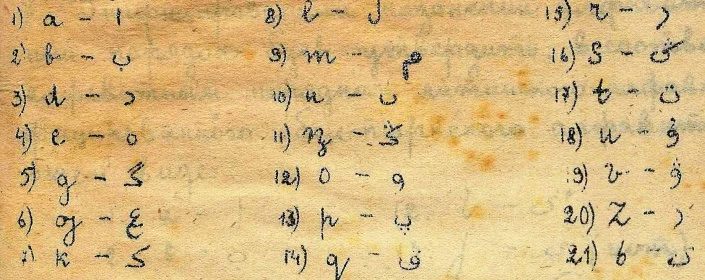 1) a - ا
2) b - ب
3) d - د
4) e - ه
5) g - گ
6) ƣ - ع
7) k - ک
8) l - ل
9) m - م
10) n - ن
11) ŋ - ڭ
12) o - و
13) p - پ
14) q - ق
15) r - ر
16) s -
17) t - ت
18) u - ۇ
19) v - ۋ
20) z - ر
21) ь -